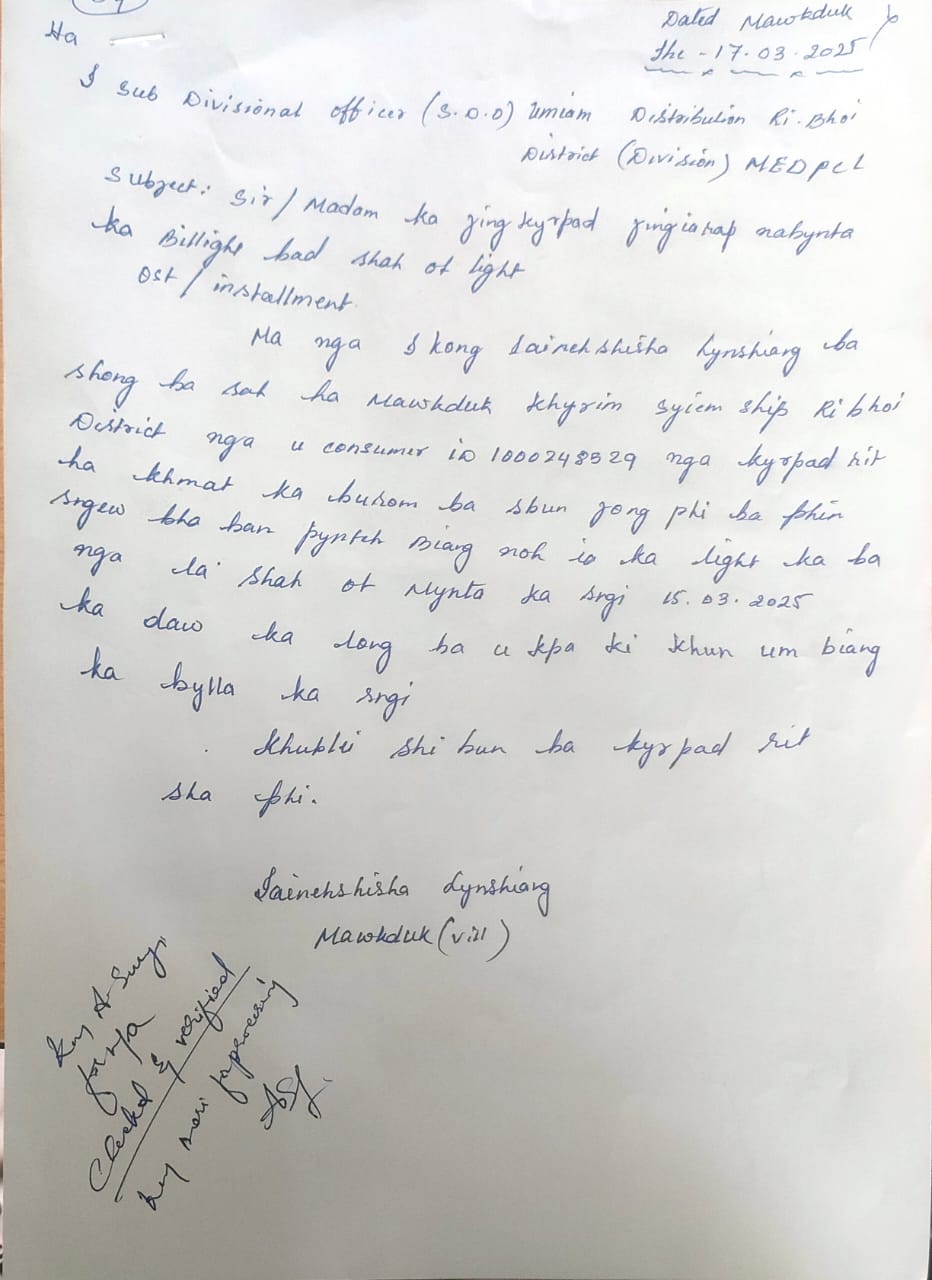 Dated Mawkduk
the - 17.03.2025
Ha
I Sub Divisional officer (S.D.O) Umiam Distribution Ri-Bhoi
District (Division) MEDPCL
Subject: Sir/Madam ka jingkyrpad jingiarap nabynta
ka Billight bad shah ot light
OST/installment
Ma nga I kong Iainehshisha Lynshiang ba
shong ba sah ha Mawkduk Khyrim Syiem ship Ri bhoi
District nga u consumer iD 1000248529 nga kyrpad rit
ha khmat ka burom ba sbun jong phi ba phin
sngew bha ban pynteh Biang noh ia ka light ka ba
nga la shah ot Mynta ka sngi 15.03.2025
ka daw ka long ba u kpa ki khun um biang
ka bylla ka sngi
Khublei shi bun ba kyrpad rit
sha phi.
Iainehshisha Lynshiang
Mawkduk (vill)
for n/a
Checked & verified